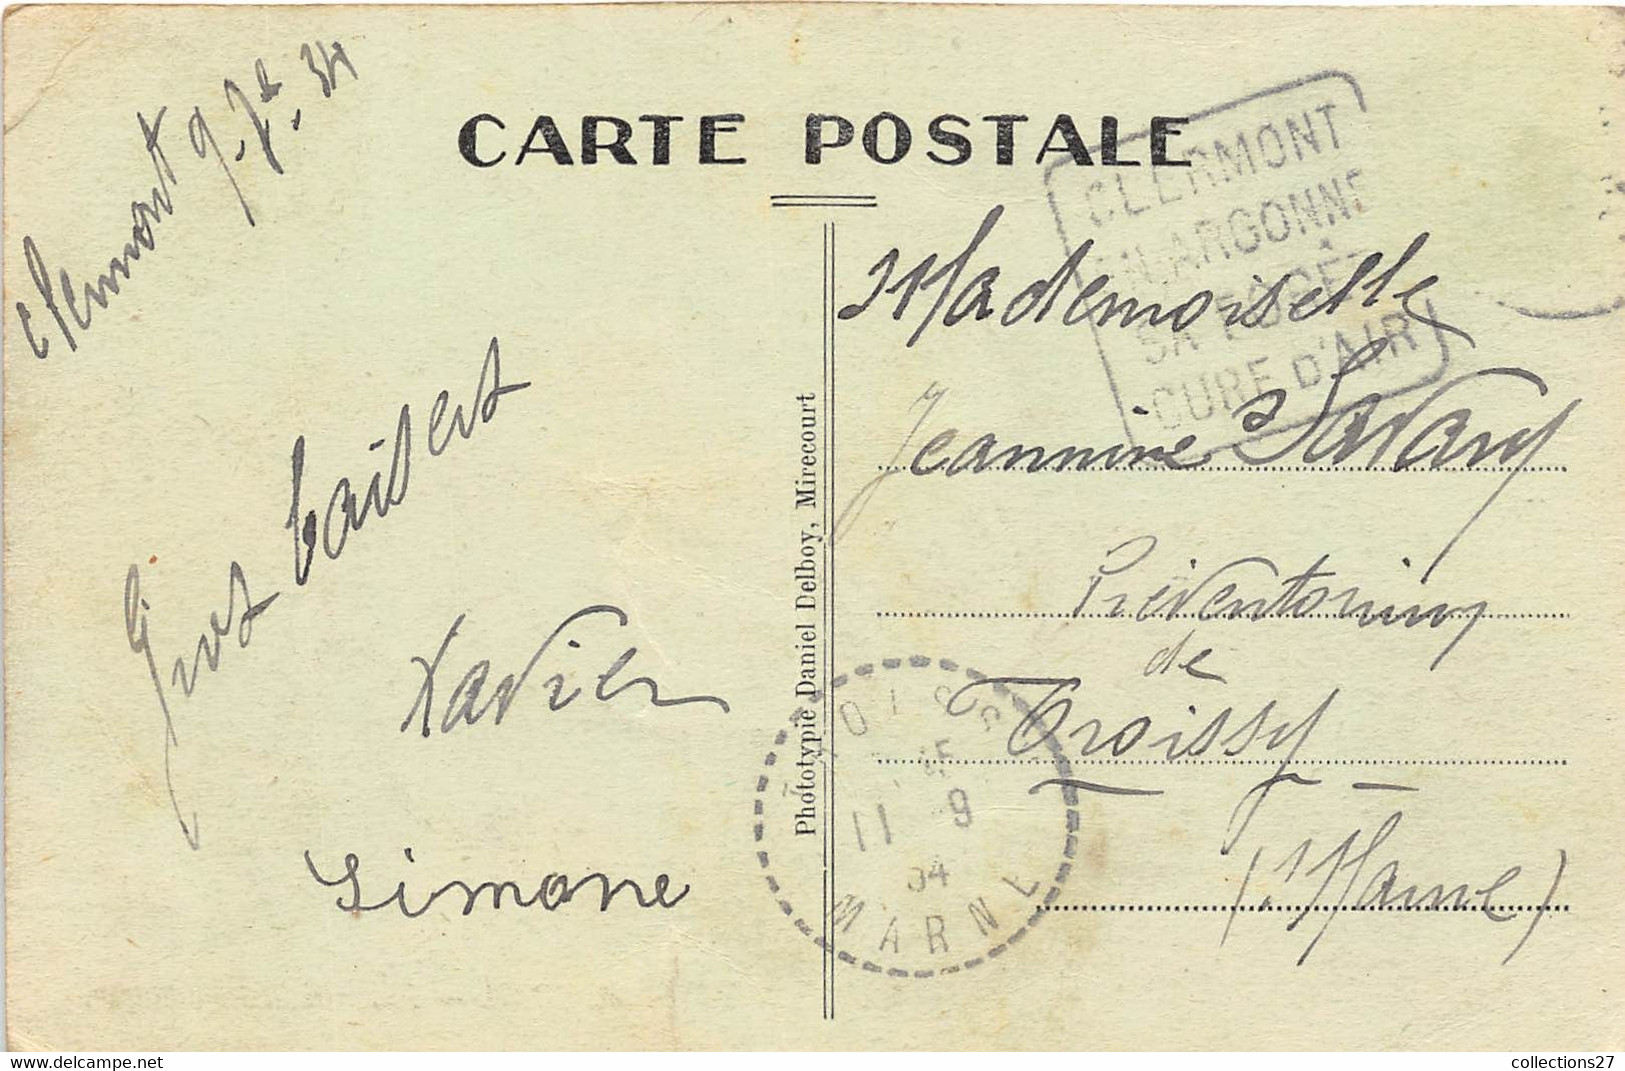 CARTE POSTALE
Clermont 9.7e.34
Gros baisers
Xavier
Simone
Phototypie Daniel Delboy, Mirecourt
CLERMONT
EN ARGONNE
SA FORÊT
CURE D'AIR
Mademoiselle
Jeannine Savary
Préventorium
de
Troissy
(Marne)
11 9
34
MARNE
collections27